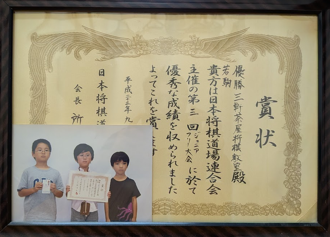 賞状
優勝
若駒 三軒茶屋将棋教室殿
貴方は日本将棋道場連合会
主催の第三回ジュニアフリー大会に於て
優秀な成績を収められました
よってこれを賞します
平成二十年九
日本将棋道
会長 所